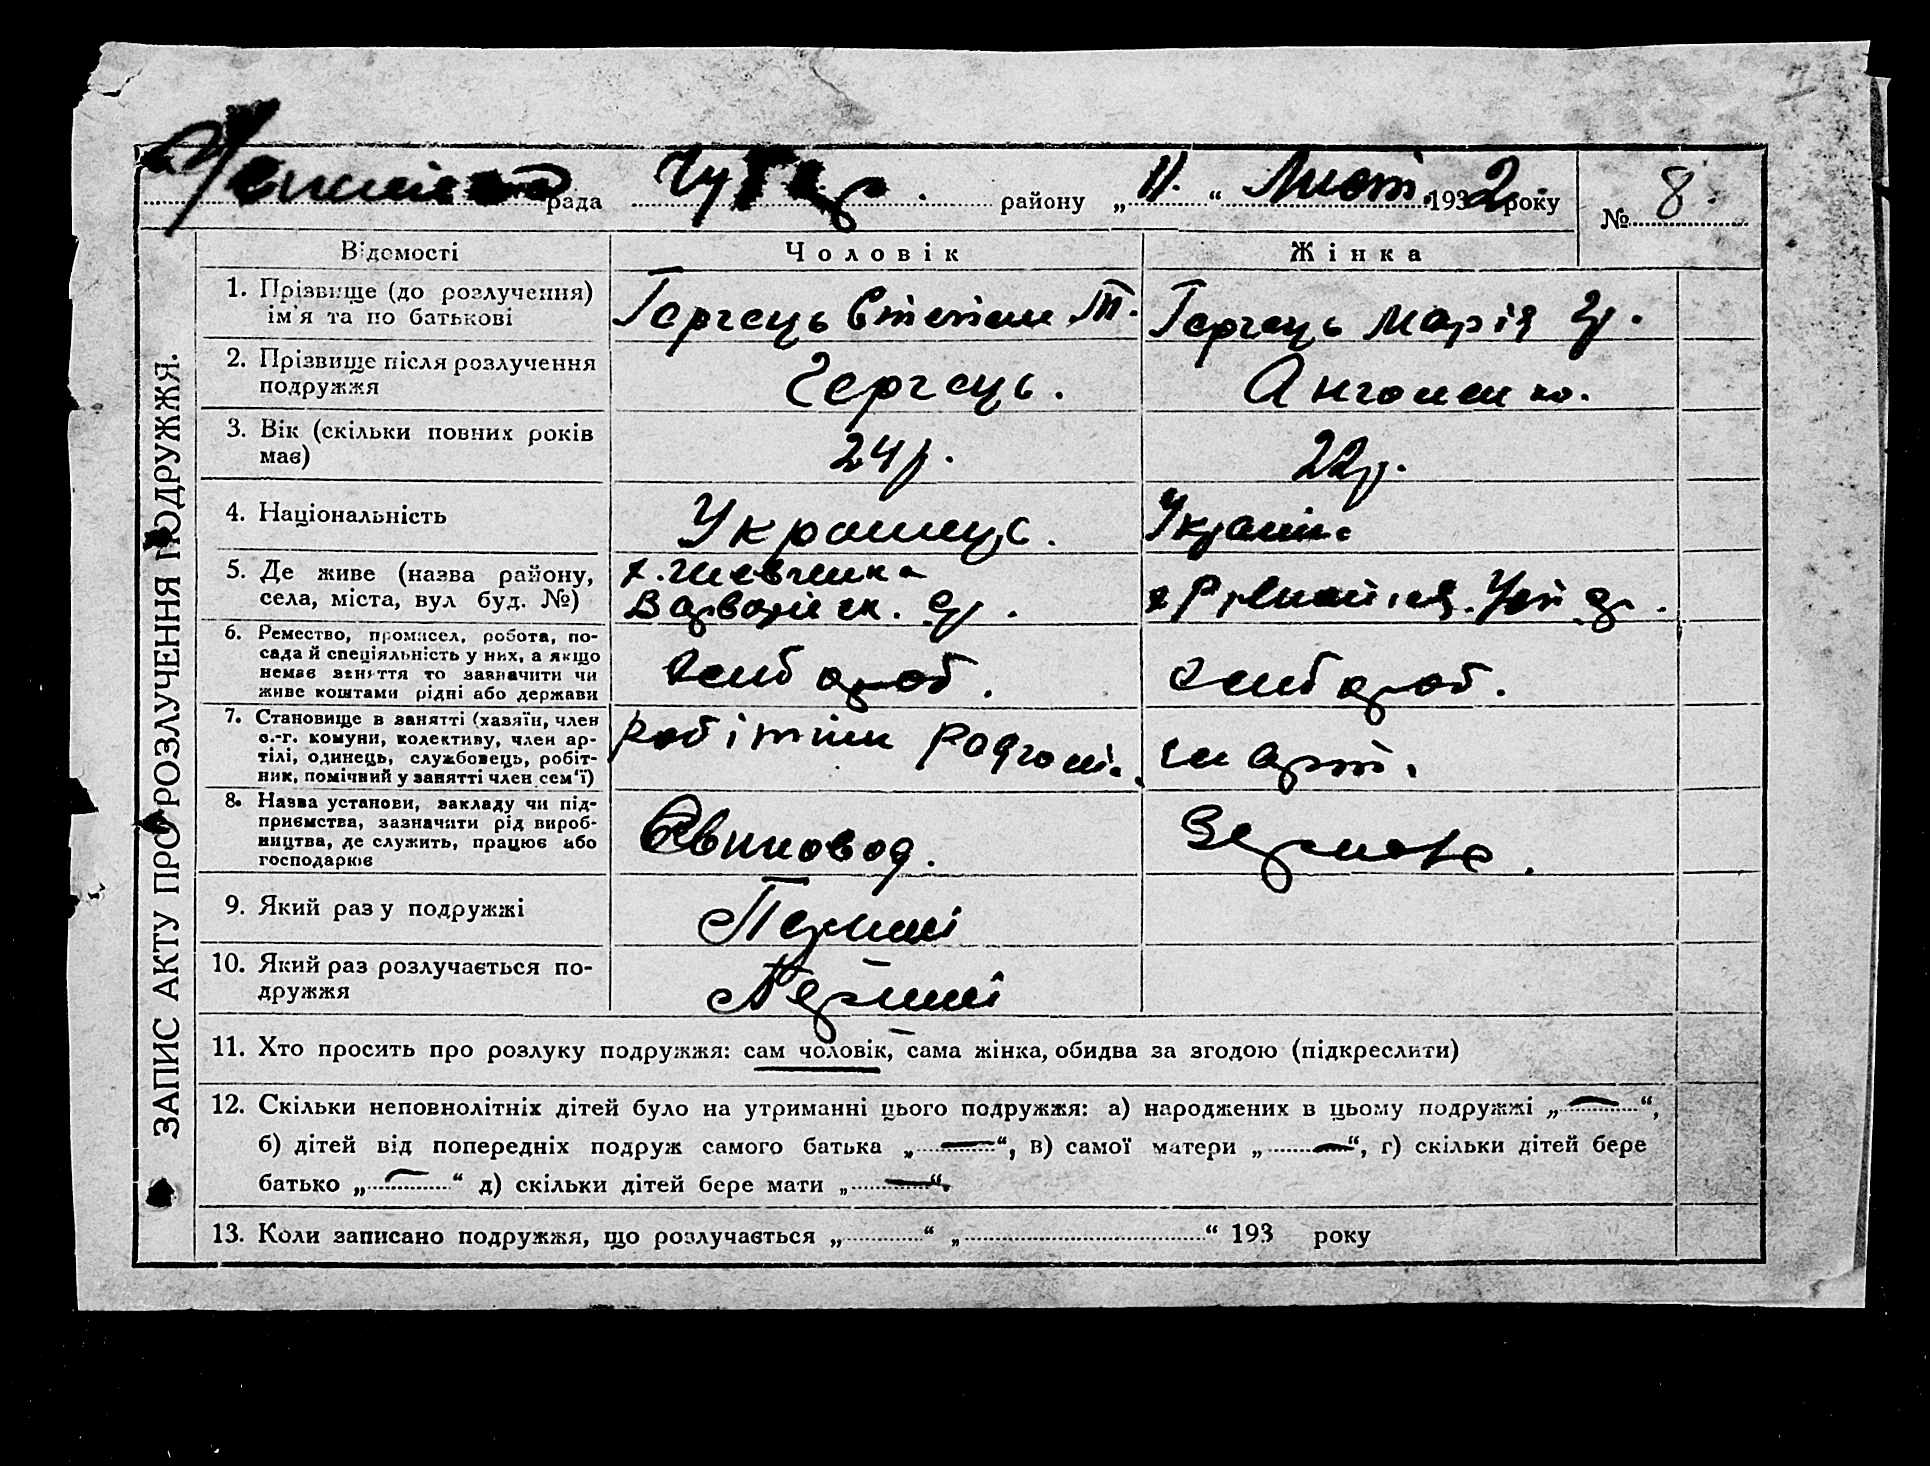 рада району „ 11. “ Лют. 1932 року
№ 8.
ЗАПИС АКТУ ПРО РОЗЛУЧЕННЯ ПОДРУЖЖЯ.
Відомості Чоловік Жінка
1. Прізвище (до розлучення) ім'я та по батькові
Гергець Степан Т. Гергець Марія
2. Прізвище після розлучення подружжя
Гергець.
3. Вік (скільки повних років має)
24 р. 22 р.
4. Національність
Українець. Україн.
5. Де живе (назва району, села, міста, вул буд. №)
х. Шевченка
6. Ремество, промисел, робота, посада й спеціяльність у них, а якщо немає заняття то зазначити чи живе коштами рідні або держави
хлібороб. хлібороб.
7. Становище в занятті (хазяїн, член с.-г. комуни, колективу, член артілі, одинець, службовець, робітник, помічний у занятті член сем'ї)
робітник Радгосп.
8. Назва установи, закладу чи підприємства, зазначити рід виробництва, де служить, працює або господарює
Свиновод.
9. Який раз у подружжі
Перший
10. Який раз розлучається подружжя
Перший
11. Хто просить про розлуку подружжя: сам чоловік, сама жінка, обидва за згодою (підкреслити)
12. Скільки неповнолітніх дітей було на утриманні цього подружжя: а) народжених в цьому подружжі „—“,
б) дітей від попередніх подруж самого батька „—“, в) самої матери „—“, г) скільки дітей бере
батько „—“ д) скільки дітей бере мати „—“.
13. Коли записано подружжя, що розлучається „ “ „ “ 193 року